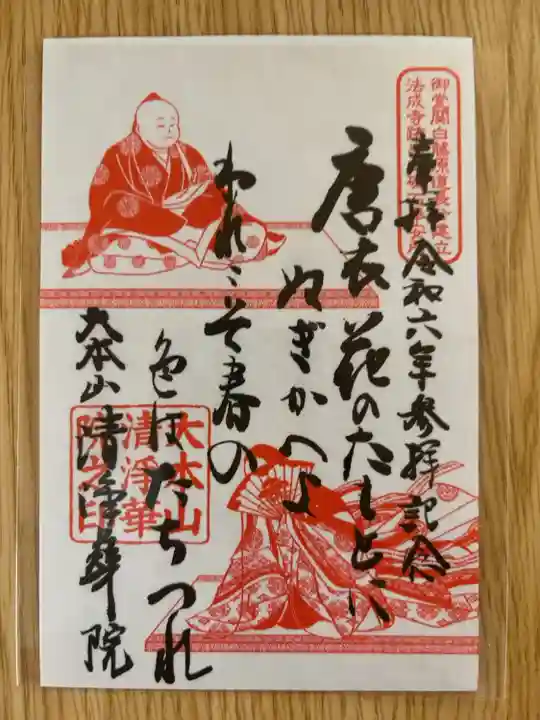 御堂関白藤原道長公建立
法成寺跡
奉拝 令和六年参拝記念
唐衣花のたもとに
ぬぎかへよ
われこそ春の
色はたちつれ
大本山 清浄華院
大本山
清浄華
院之印